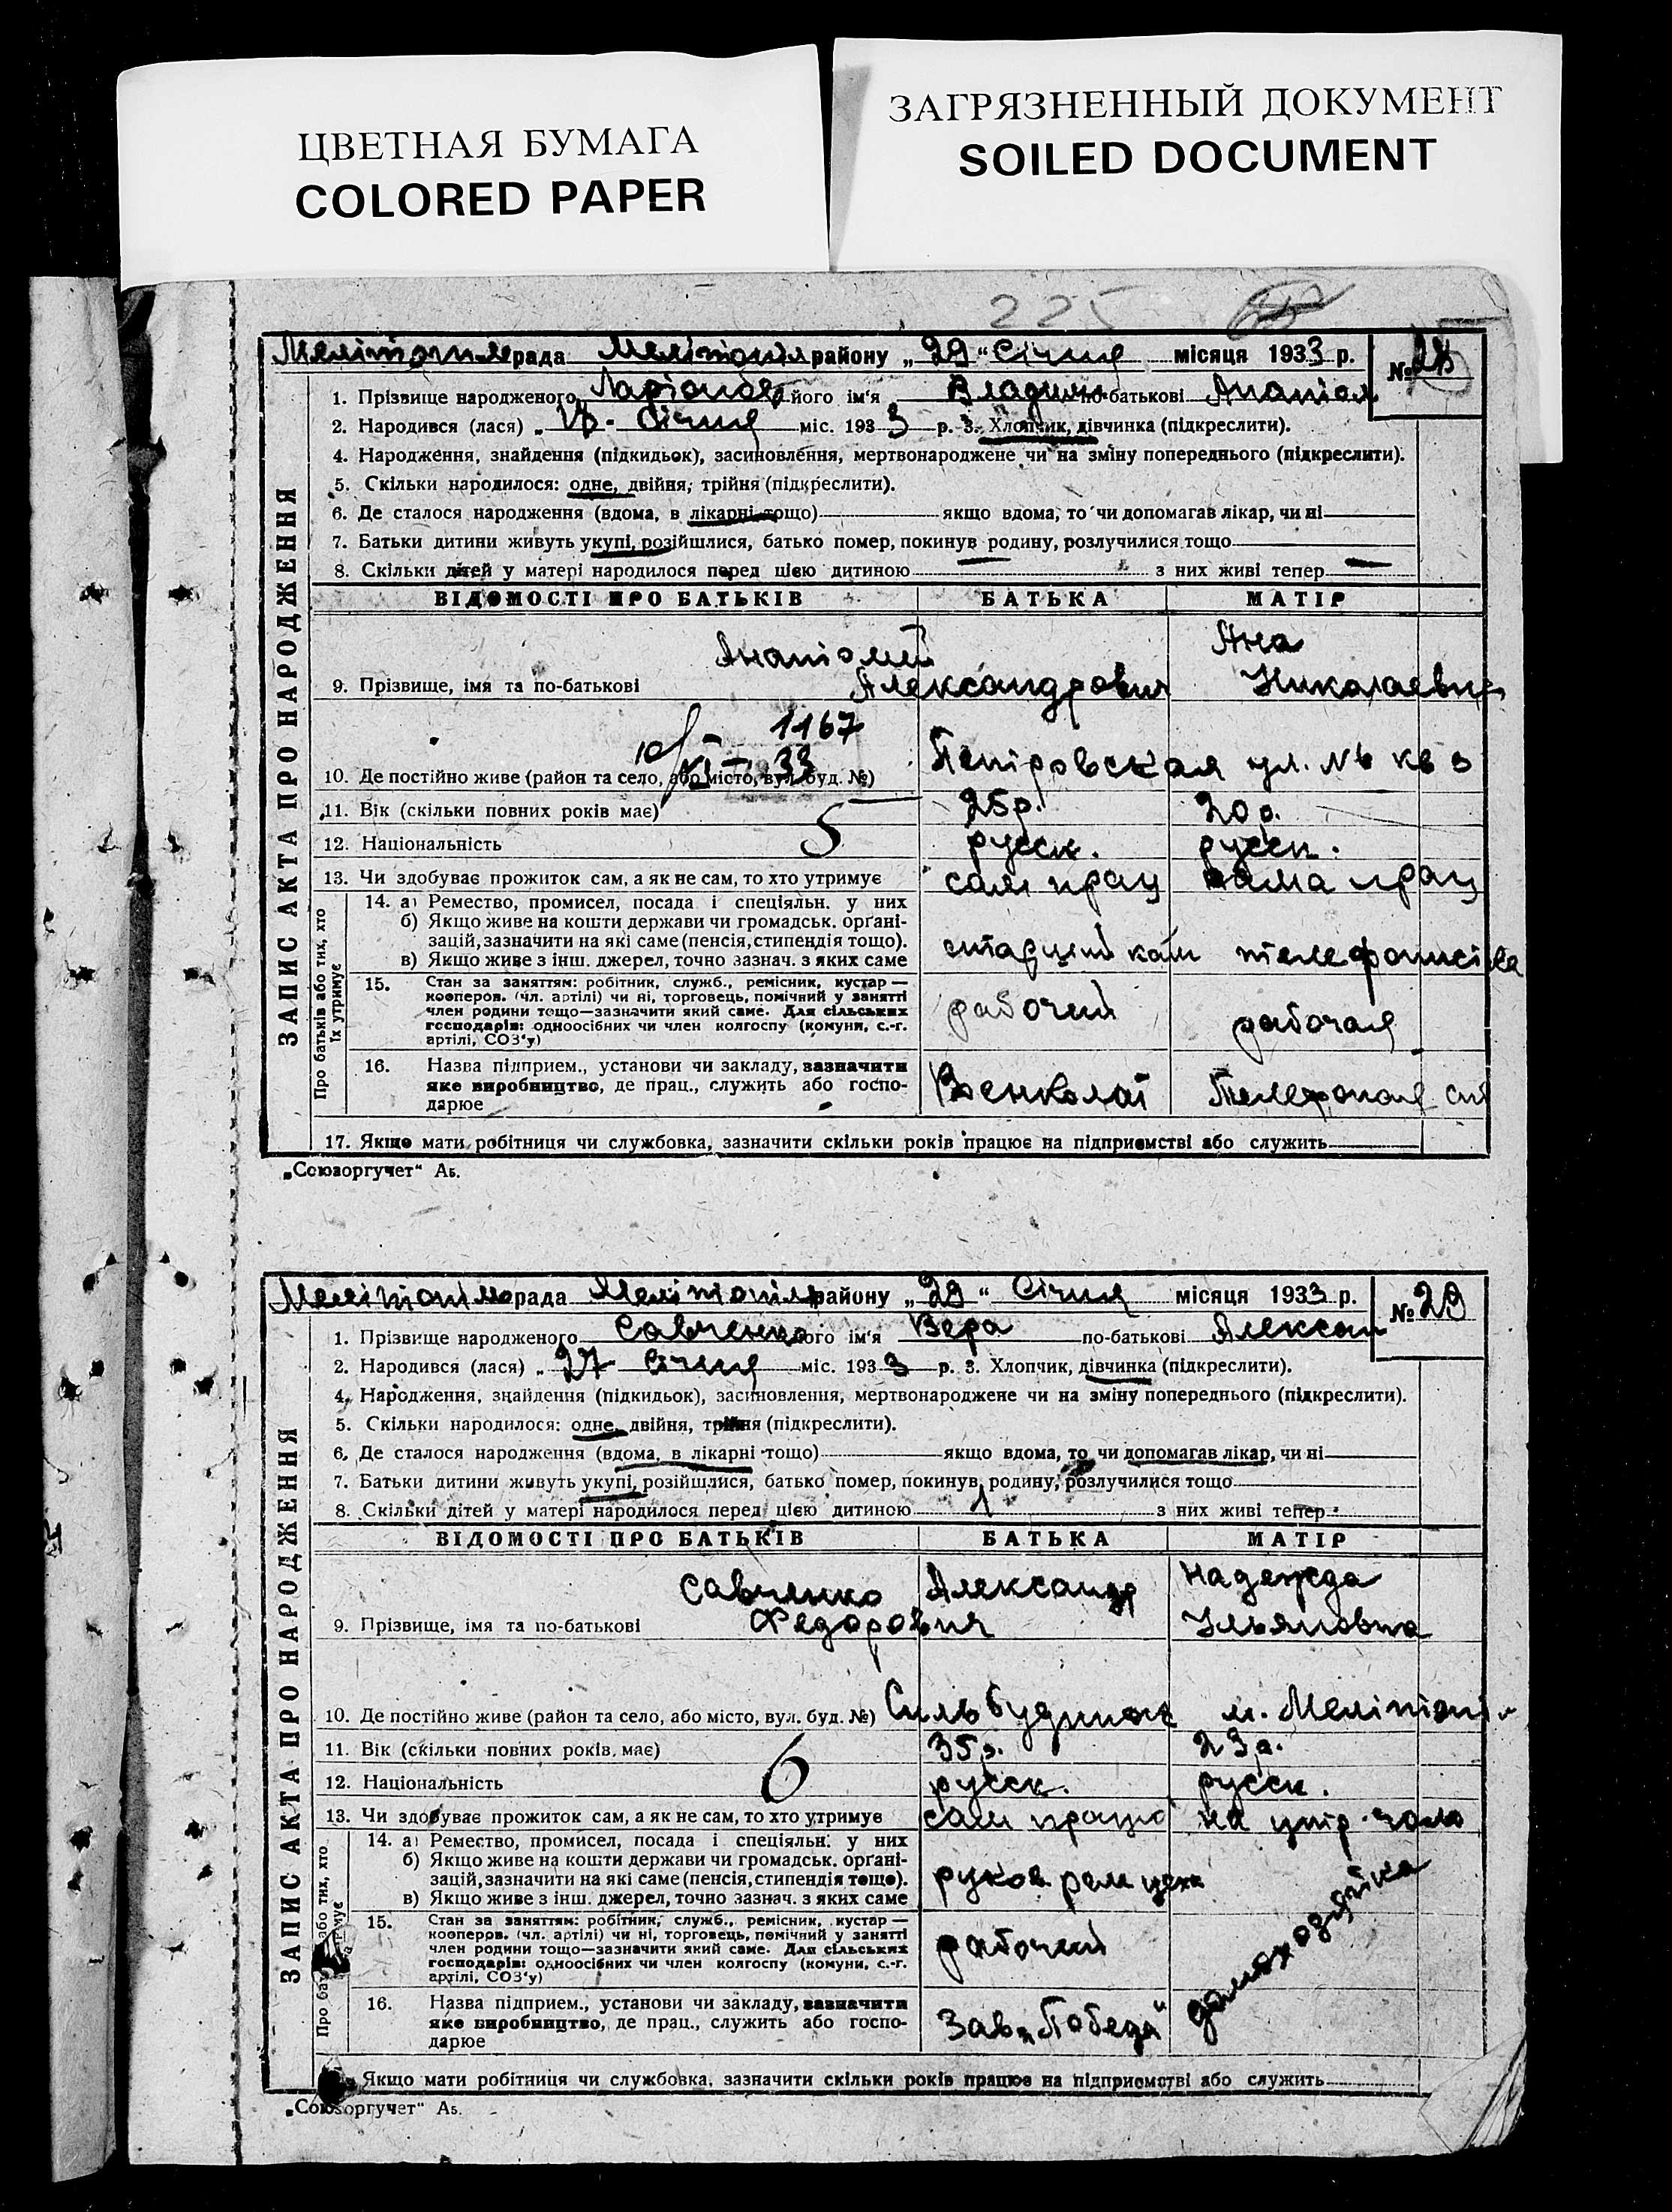 ЦВЕТНАЯ БУМАГА
COLORED PAPER
ЗАГРЯЗНЕННЫЙ ДОКУМЕНТ
SOILED DOCUMENT
225
рада район­у „29“ Січня місяця 1933 р. № 28
1. Прізвище народженого його ім'я по-батькові
2. Народився (лася) „ Січня міс. 1933 р. 3. Хлопчик, дівчинка (підкреслити).
4. Народження, знайдення (підкидьок), засиновлення, мертвонароджене чи на зміну попереднього (підкреслити).
5. Скільки народилося: одне, двійня, трійня (підкреслити).
6. Де сталося народження (вдома, в лікарні тощо) якщо вдома, то чи допомагав лікар, чи ні
7. Батьки дитини живуть укупі, розійшлися, батько помер, покинув родину, розлучилися тощо
8. Скільки дітей у матері народилося перед цією дитиною з них живі тепер
ЗАПИС АКТА ПРО НАРОДЖЕННЯ
ВІДОМОСТІ ПРО БАТЬКІВ БАТЬКА МАТІР
Ана
9. Прізвище, імя та по-батькові Александрович Николаевна
1167
33
10. Де постійно живе (район та село, або місто, вул. буд. №) ул. №6 кв 3
11. Вік (скільки повних років має) 25р. 20 р.
5
12. Національність русск. русск.
13. Чи здобуває прожиток сам, а як не сам, то хто утримує сам прац сама прац
Про батьків або тих, хто їх утримує
14. а) Ремество, промисел, посада і спеціяльн. у них
б) Якщо живе на кошти держави чи громадськ. орґані-
зацій, зазначити на які саме (пенсія, стипендія тощо).
в) Якщо живе з інш. джерел, точно зазнач. з яких саме
15. Стан за заняттям: робітник, служб., ремісник, кустар —
кооперов. (чл. артілі) чи ні, торговець, помічний у занятті
член родини тощо—зазначити який саме. Для сільських
господарів: одноосібних чи член колгоспу (комуни, с.-г.
артілі, СОЗ'у)
рабочий рабочая
16. Назва підприєм., установи чи закладу, зазначити
яке виробництво, де прац., служить або госпо-
дарює
17. Якщо мати робітниця чи службовка, зазначити скільки років працює на підприємстві або служить
„Союзоргучет“ Аь.
рада району „29“ Січня місяця 1933 р. № 29
1. Прізвище народженого Савченко його ім'я Вера по-батькові Алексан
2. Народився (лася) „27 Січня міс. 1933 р. 3. Хлопчик, дівчинка (підкреслити).
4. Народження, знайдення (підкидьок), засиновлення, мертвонароджене чи на зміну попереднього (підкреслити).
5. Скільки народилося: одне, двійня, трійня (підкреслити).
6. Де сталося народження (вдома, в лікарні тощо) якщо вдома, то чи допомагав лікар, чи ні
7. Батьки дитини живуть укупі, розійшлися, батько помер, покинув родину, розлучилися тощо
8. Скільки дітей у матері народилося перед цією дитиною 1 з них живі тепер
ЗАПИС АКТА ПРО НАРОДЖЕННЯ
ВІДОМОСТІ ПРО БАТЬКІВ БАТЬКА МАТІР
Савченко Александр Надежда
9. Прізвище, імя та по-батькові Федорович Ульяновна
10. Де постійно живе (район та село, або місто, вул. буд. №) м.
11. Вік (скільки повних років має) 35р. 23р.
6
12. Національність русск. русск.
13. Чи здобуває прожиток сам, а як не сам, то хто утримує сам на утр.
14. а) Ремество, промисел, посада і спеціяльн. у них
б) Якщо живе на кошти держави чи громадськ. орґані-
зацій, зазначити на які саме (пенсія, стипендія тощо).
в) Якщо живе з інш. джерел, точно зазнач. з яких саме
руков. рем цеха
домохозяйка
15. Стан за заняттям: робітник, служб., ремісник, кустар —
кооперов. (чл. артілі) чи ні, торговець, помічний у занятті
член родини тощо—зазначити який саме. Для сільських
господарів: одноосібних чи член колгоспу (комуни, с.-г.
артілі, СОЗ'у)
рабочий
16. Назва підприєм., установи чи закладу, зазначити
яке виробництво, де прац., служить або госпо-
дарює
Зав „Победа“
Якщо мати робітниця чи службовка, зазначити скільки років працює на підприємстві або служить
„Союзоргучет“ Аь.